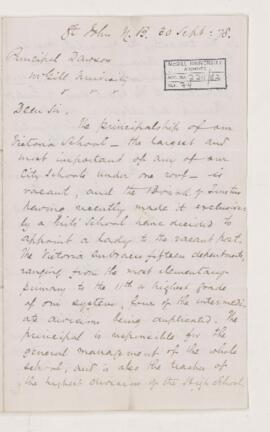 St John N.B. 30 Sept: 78.
Principal Dawson
McGill University
McGILL UNIVERSITY
ARCHIVES
ACC. NO.
REF.
Dear Sir.
The principalship of our
Victoria School – the largest and
most important of any of our
City Schools under one roof – is
vacant, and the Board of Trustees
having recently made it exclusively
a Girls' School have decided to
appoint a Lady to the vacant post.
The Victoria embraces fifteen departments,
ranging from the most elementary
primary to the 11th or highest grade
of our system, four of the intermedi-
ate divisions being duplicated. The
principal is responsible for the
general management of the whole
school, and is also the teacher of
the highest division of the High School